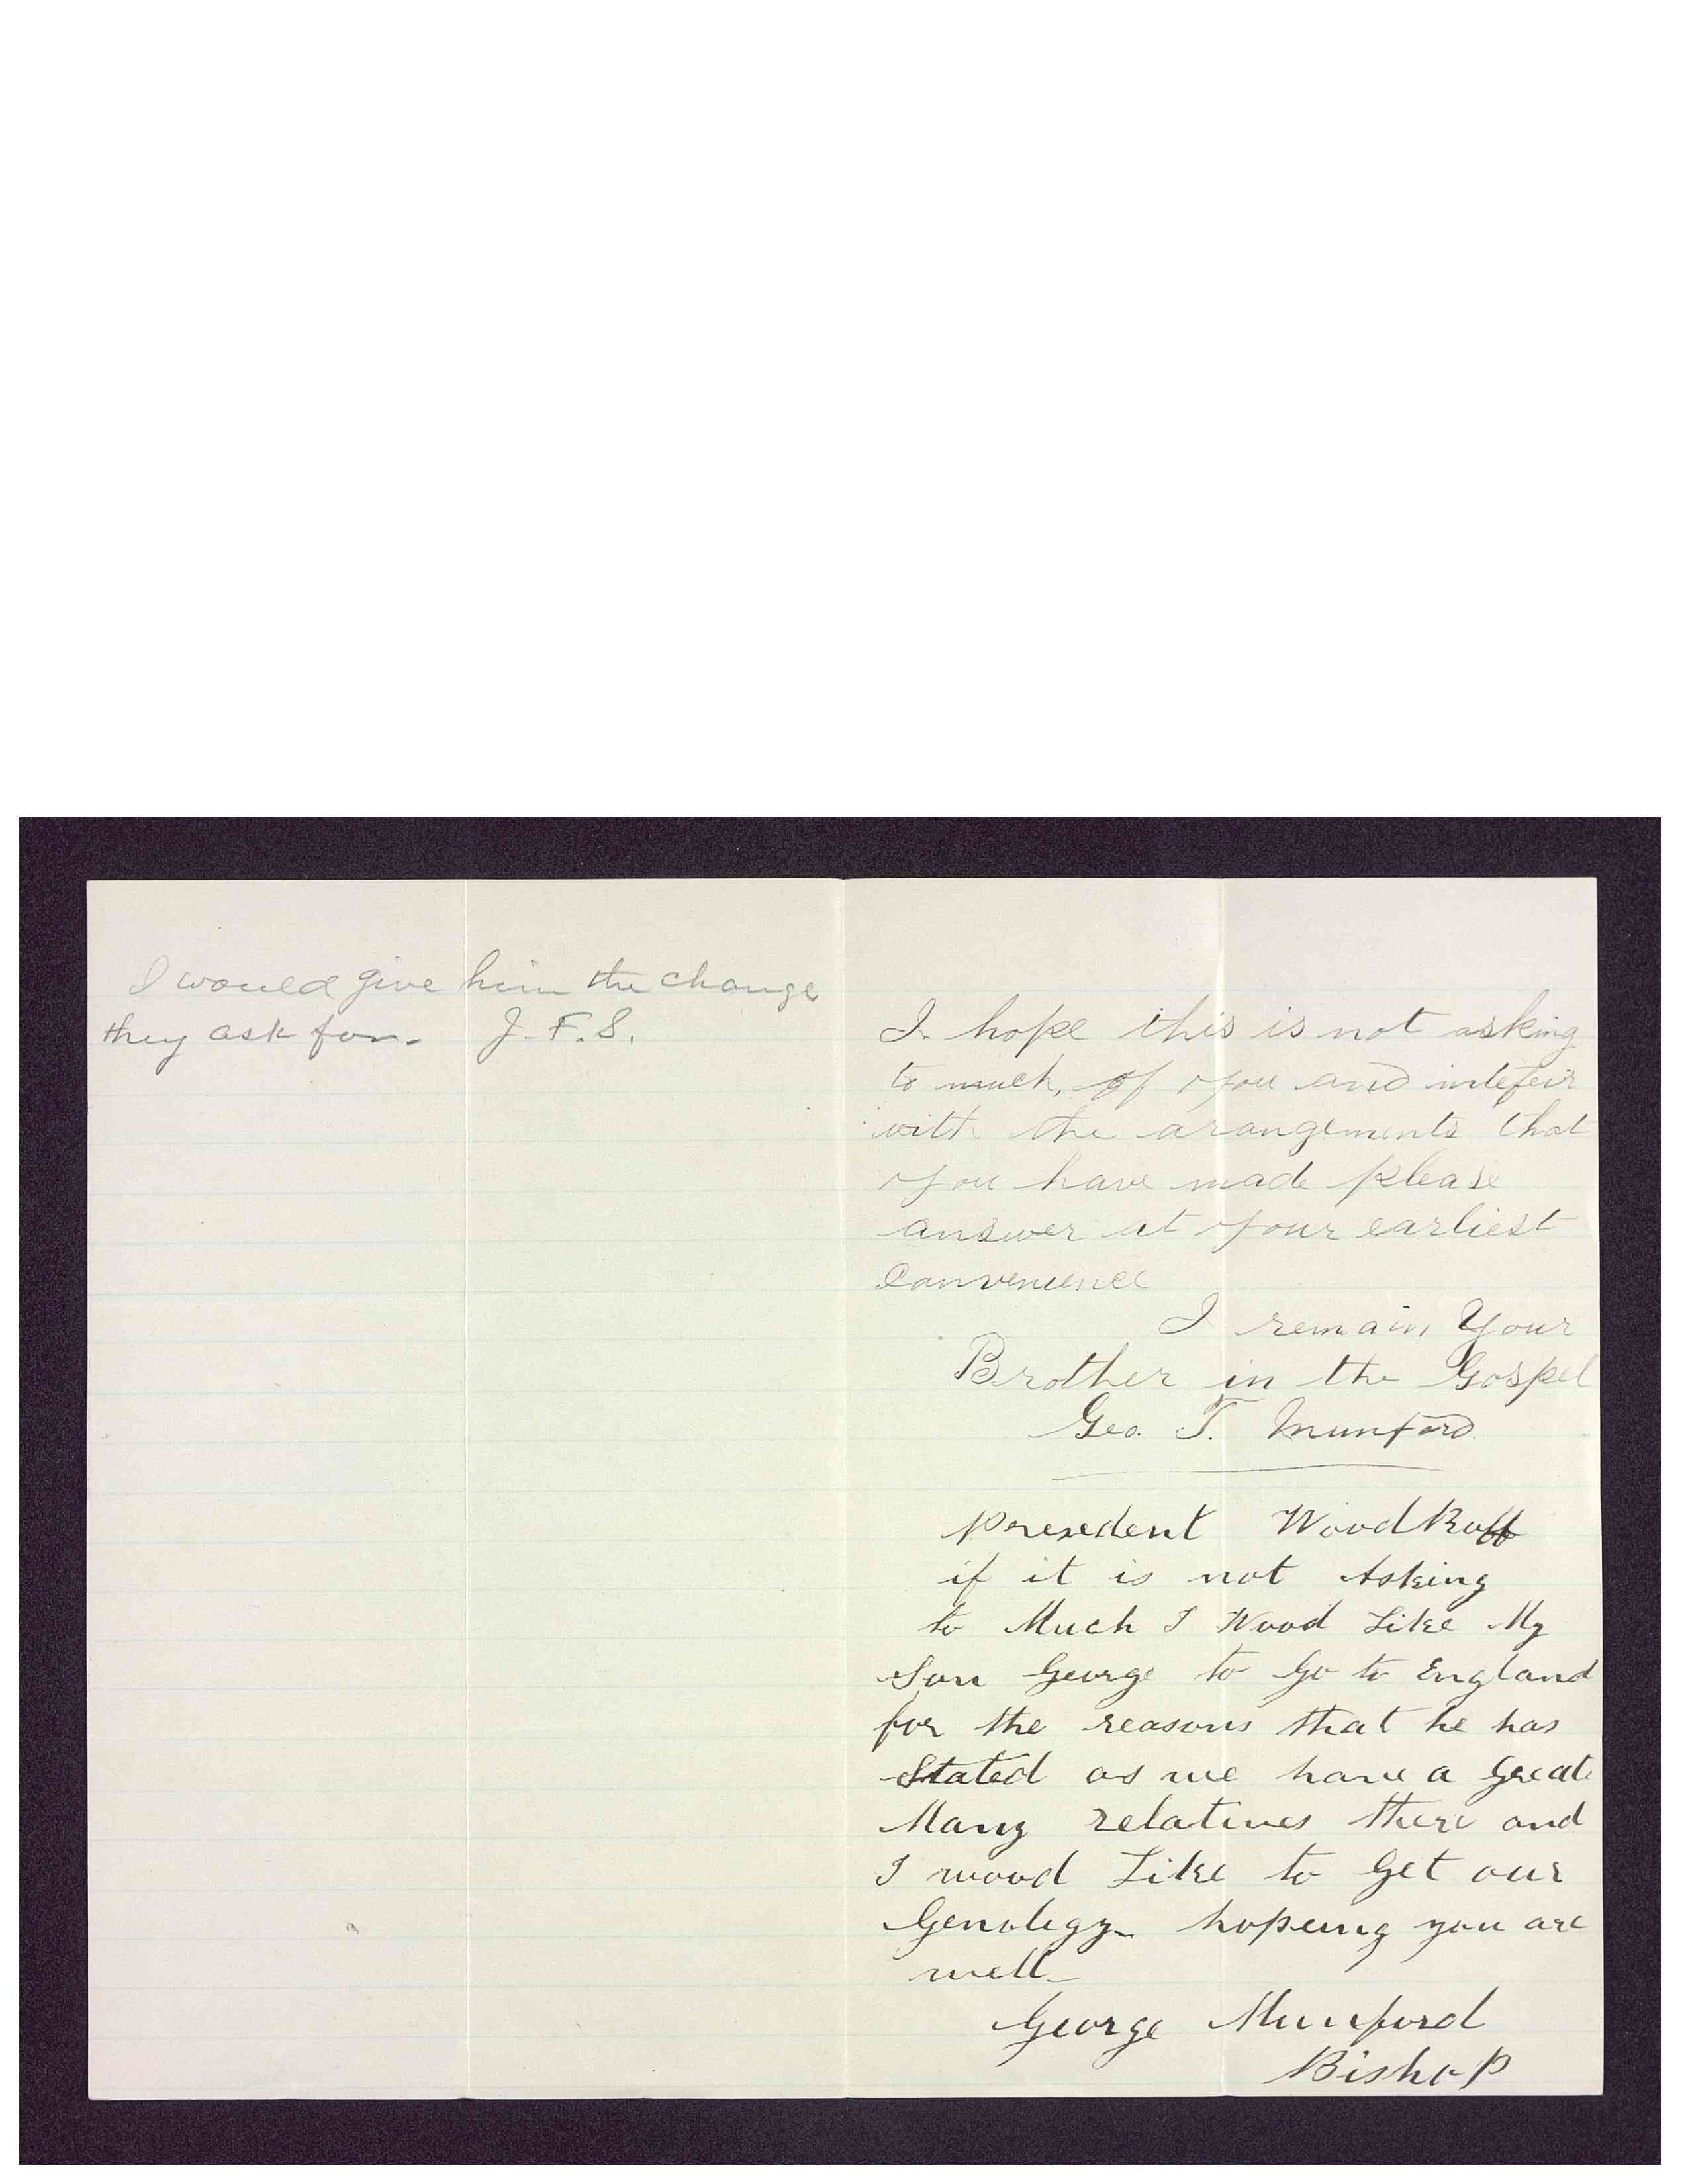 I would give him the change
they ask for. J. F. S.
I hope this is not asking
to much, of you and intefeir
with the arangements that
you have made please
answer at your earliest
convenience
I remain Your
Brother in the Gospel
Geo. T. Munford
Presedent WoodRuff
if it is not Asking
to Much I Wood Like My
Son George to Go to England
for the reasons that he has
Stated as we have a Great
Many relatives there and
I wood Like to Get our
Genolegy hopeing you are
well
George Munford
Bishop